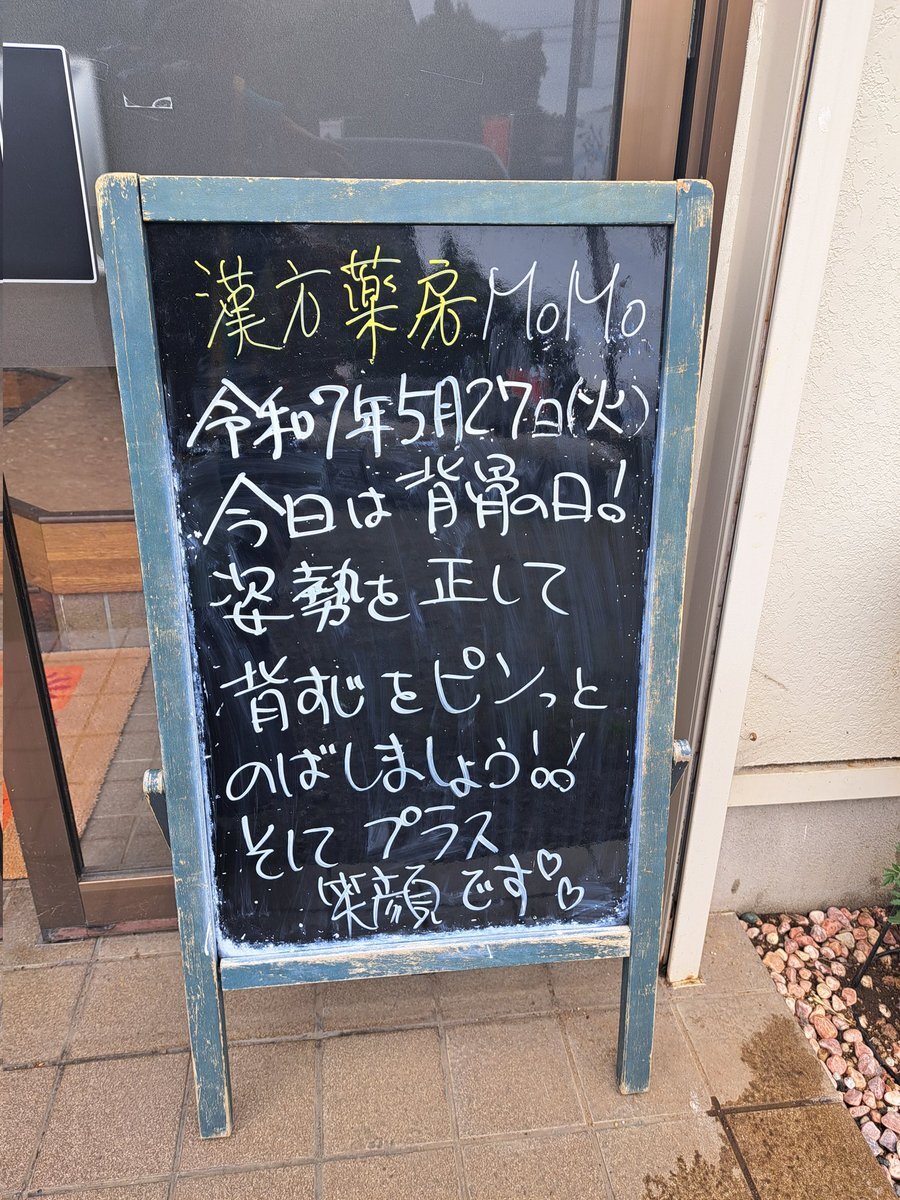 漢方薬房MoMo
令和7年5月27日(火)
今日は背骨の日!
姿勢を正して
背すじをピンっと
のばしましょう!!
そしてプラス
笑顔です♡♡